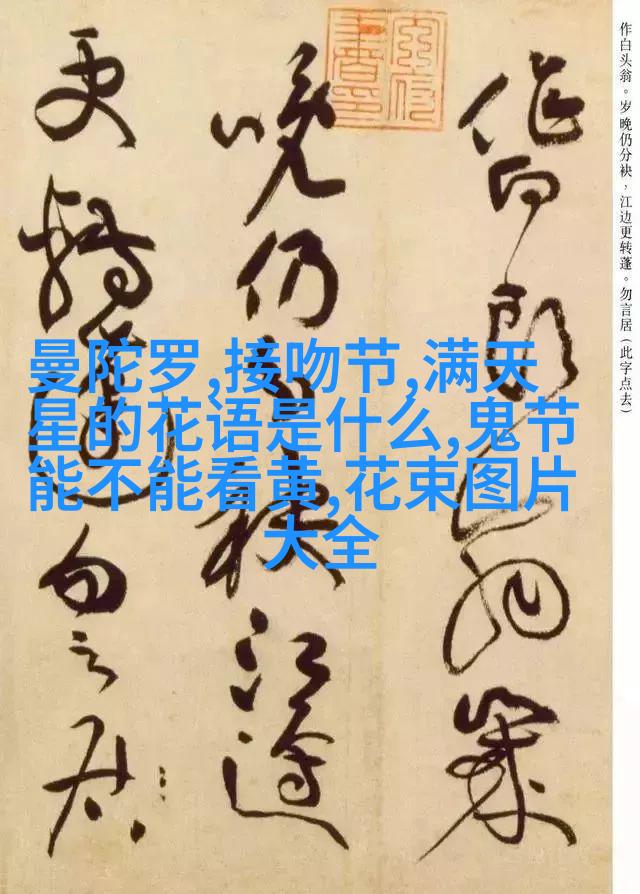 作白头翁。岁晚仍分袂，江边更转蓬。勿言居（此字点去）
作白頭翁歲
晚仍分袂江邊
更轉蓬勿言居
曼陀罗,接吻节,满天
星的花语是什么,鬼节
能不能看黄,花束图片
大全